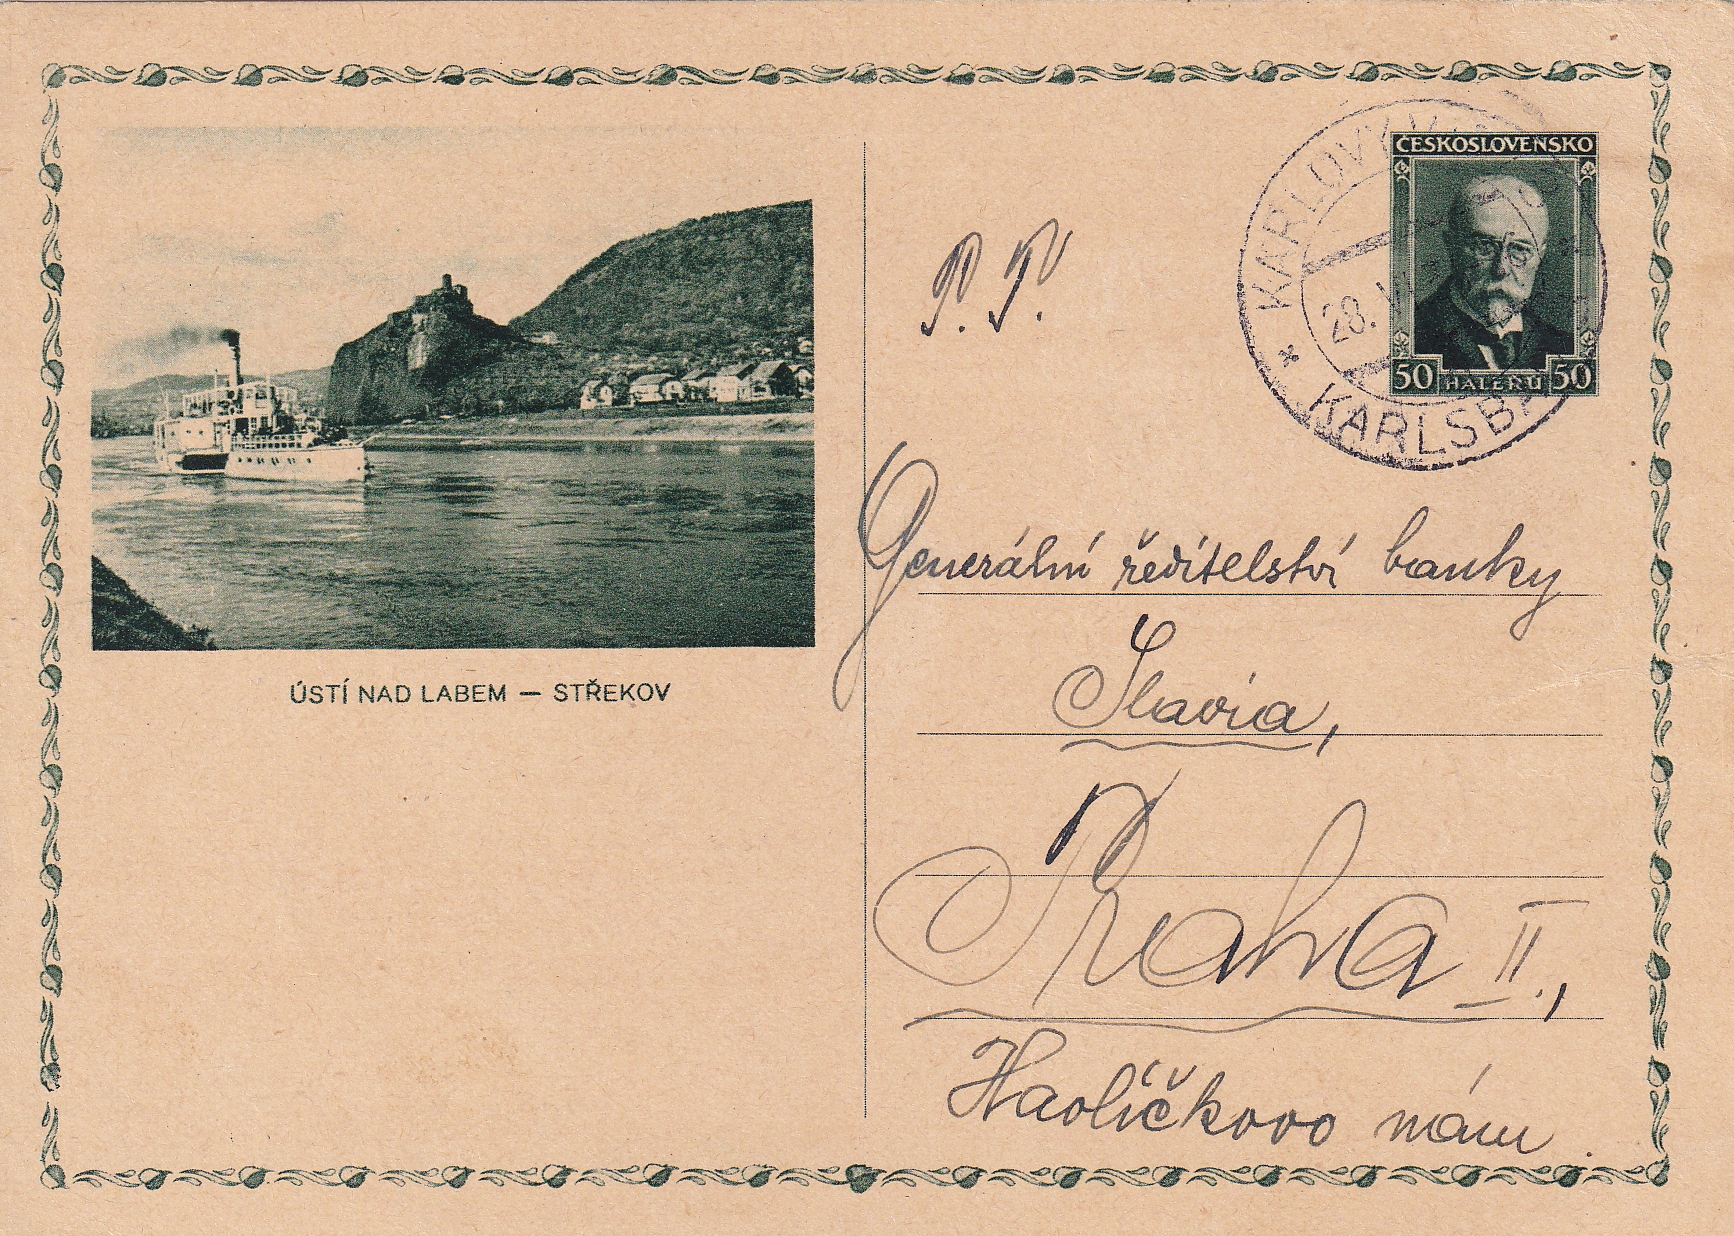 ČESKOSLOVENSKO
50 HALÉŘŮ 50
KARLOVY
28.
* KARLSBA
P. P.
ÚSTÍ NAD LABEM — STŘEKOV
Generální ředitelství banky
Slavia,
Praha II.,
Havlíčkovo nám.